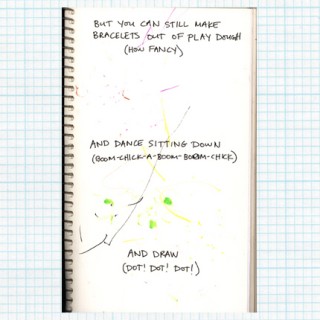 BUT YOU CAN STILL MAKE
BRACELETS OUT OF PLAY DOUGH
(HOW FANCY)
AND DANCE SITTING DOWN
(BOOM-CHICK-A-BOOM-BOOM-CHICK)
AND DRAW
(DOT! DOT! DOT!)